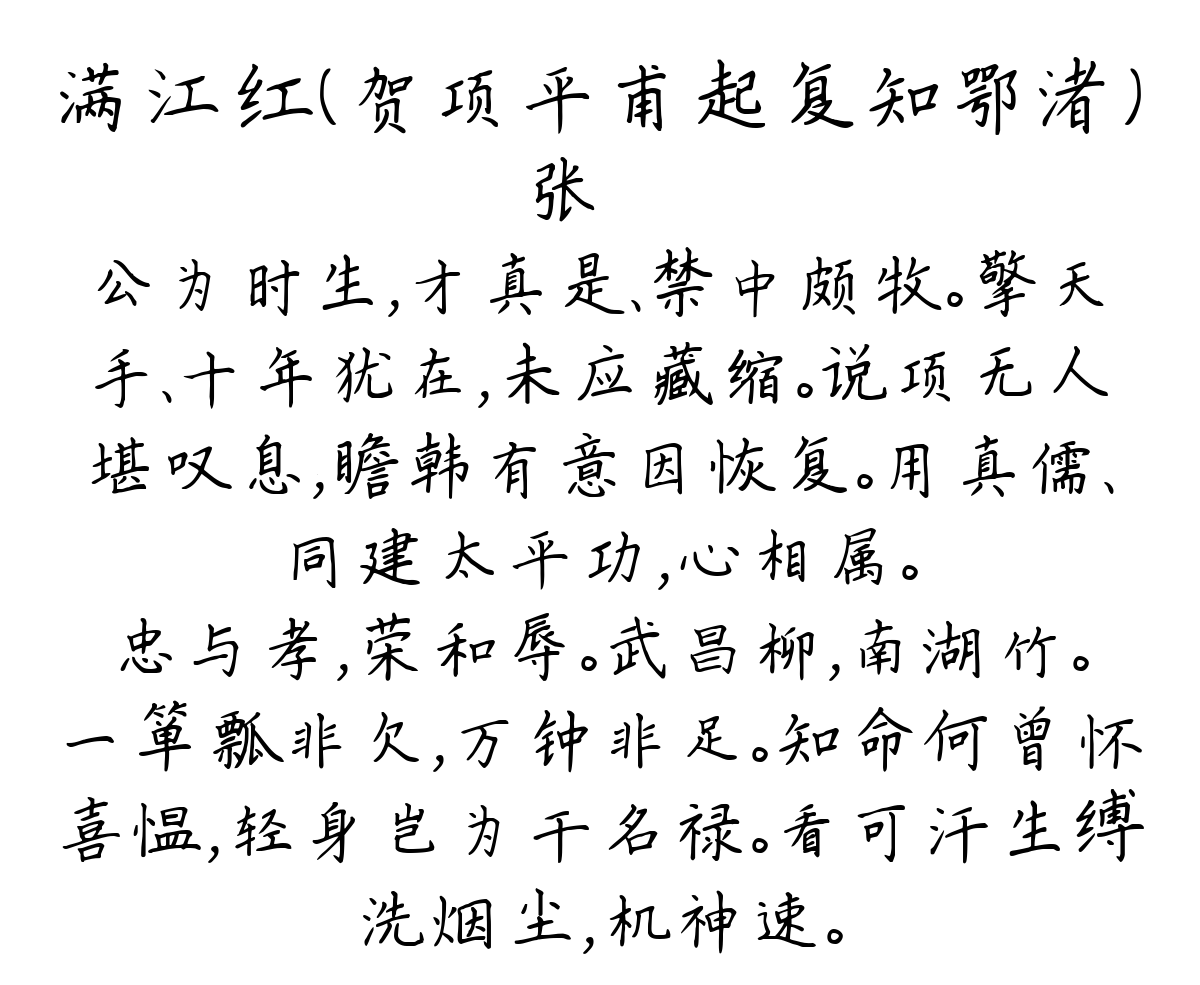 满江红(贺项平甫起复知鄂渚)
张
公为时生,才真是、禁中颇牧。擎天
手、十年犹在,未应藏缩。说项无人
堪叹息,瞻韩有意因恢复。用真儒、
同建太平功,心相属。
忠与孝,荣和辱。武昌柳,南湖竹。
一箪瓢非欠,万钟非足。知命何曾怀
喜愠,轻身岂为干名禄。看可汗生缚
洗烟尘,机神速。